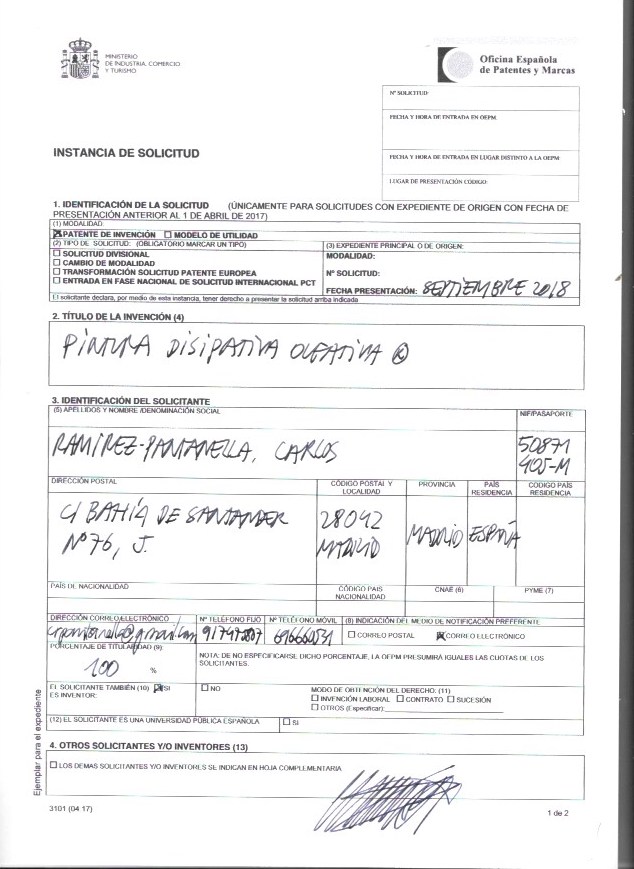 MINISTERIO
DE INDUSTRIA, COMERCIO
Y TURISMO
Oficina Española
de Patentes y Marcas
Nº SOLICITUD:
FECHA Y HORA DE ENTRADA EN OEPM:
FECHA Y HORA DE ENTRADA EN LUGAR DISTINTO A LA OEPM
LUGAR DE PRESENTACIÓN CÓDIGO:
INSTANCIA DE SOLICITUD
1. IDENTIFICACIÓN DE LA SOLICITUD (ÚNICAMENTE PARA SOLICITUDES CON EXPEDIENTE DE ORIGEN CON FECHA DE
PRESENTACIÓN ANTERIOR AL 1 DE ABRIL DE 2017)
(1) MODALIDAD:
PATENTE DE INVENCIÓN MODELO DE UTILIDAD
(2) TIPO DE SOLICITUD: (OBLIGATORIO MARCAR UN TIPO)
SOLICITUD DIVISIONAL
CAMBIO DE MODALIDAD
TRANSFORMACIÓN SOLICITUD PATENTE EUROPEA
ENTRADA EN FASE NACIONAL DE SOLICITUD INTERNACIONAL PCT
(3) EXPEDIENTE PRINCIPAL O DE ORIGEN:
MODALIDAD:
Nº SOLICITUD:
FECHA PRESENTACIÓN: SEPTIEMBRE 2018
El solicitante declara, por medio de esta instancia, tener derecho a presentar la solicitud arriba indicada
2. TÍTULO DE LA INVENCIÓN (4)
PINTURA DISIPATIVA OLFATIVA ©
3. IDENTIFICACIÓN DEL SOLICITANTE
(5) APELLIDOS Y NOMBRE /DENOMINACIÓN SOCIAL
NIF/PASAPORTE
RAMÍREZ-PANTANELLA, CARLOS
50871
405-M
DIRECCIÓN POSTAL
CÓDIGO POSTAL Y
LOCALIDAD
PROVINCIA
PAÍS
RESIDENCIA
CÓDIGO PAÍS
RESIDENCIA
C/ BAHÍA DE SANTANDER
Nº 76, J.
28042
MADRID
MADRID
ESPAÑA
PAÍS DE NACIONALIDAD
CÓDIGO PAIS
NACIONALIDAD
CNAE (6)
PYME (7)
DIRECCIÓN CORREO ELECTRÓNICO
Nº TELÉFONO FIJO
Nº TELÉFONO MÓVIL
(8) INDICACIÓN DEL MEDIO DE NOTIFICACIÓN PREFERENTE
CORREO POSTAL CORREO ELECTRÓNICO
PORCENTAJE DE TITULARIDAD (9)
100 %
NOTA: DE NO ESPECIFICARSE DICHO PORCENTAJE, LA OEPM PRESUMIRÁ IGUALES LAS CUOTAS DE LOS
SOLICITANTES.
EL SOLICITANTE TAMBIÉN (10) SI
ES INVENTOR:
NO
MODO DE OBTENCIÓN DEL DERECHO: (11)
INVENCIÓN LABORAL CONTRATO SUCESIÓN
OTROS (Especificar):
(12) EL SOLICITANTE ES UNA UNIVERSIDAD PÚBLICA ESPAÑOLA
SI
4. OTROS SOLICITANTES Y/O INVENTORES (13)
LOS DEMAS SOLICITANTES Y/O INVENTORES SE INDICAN EN HOJA COMPLEMENTARIA
Ejemplar para el expediente
3101 (04 17)
1 de 2